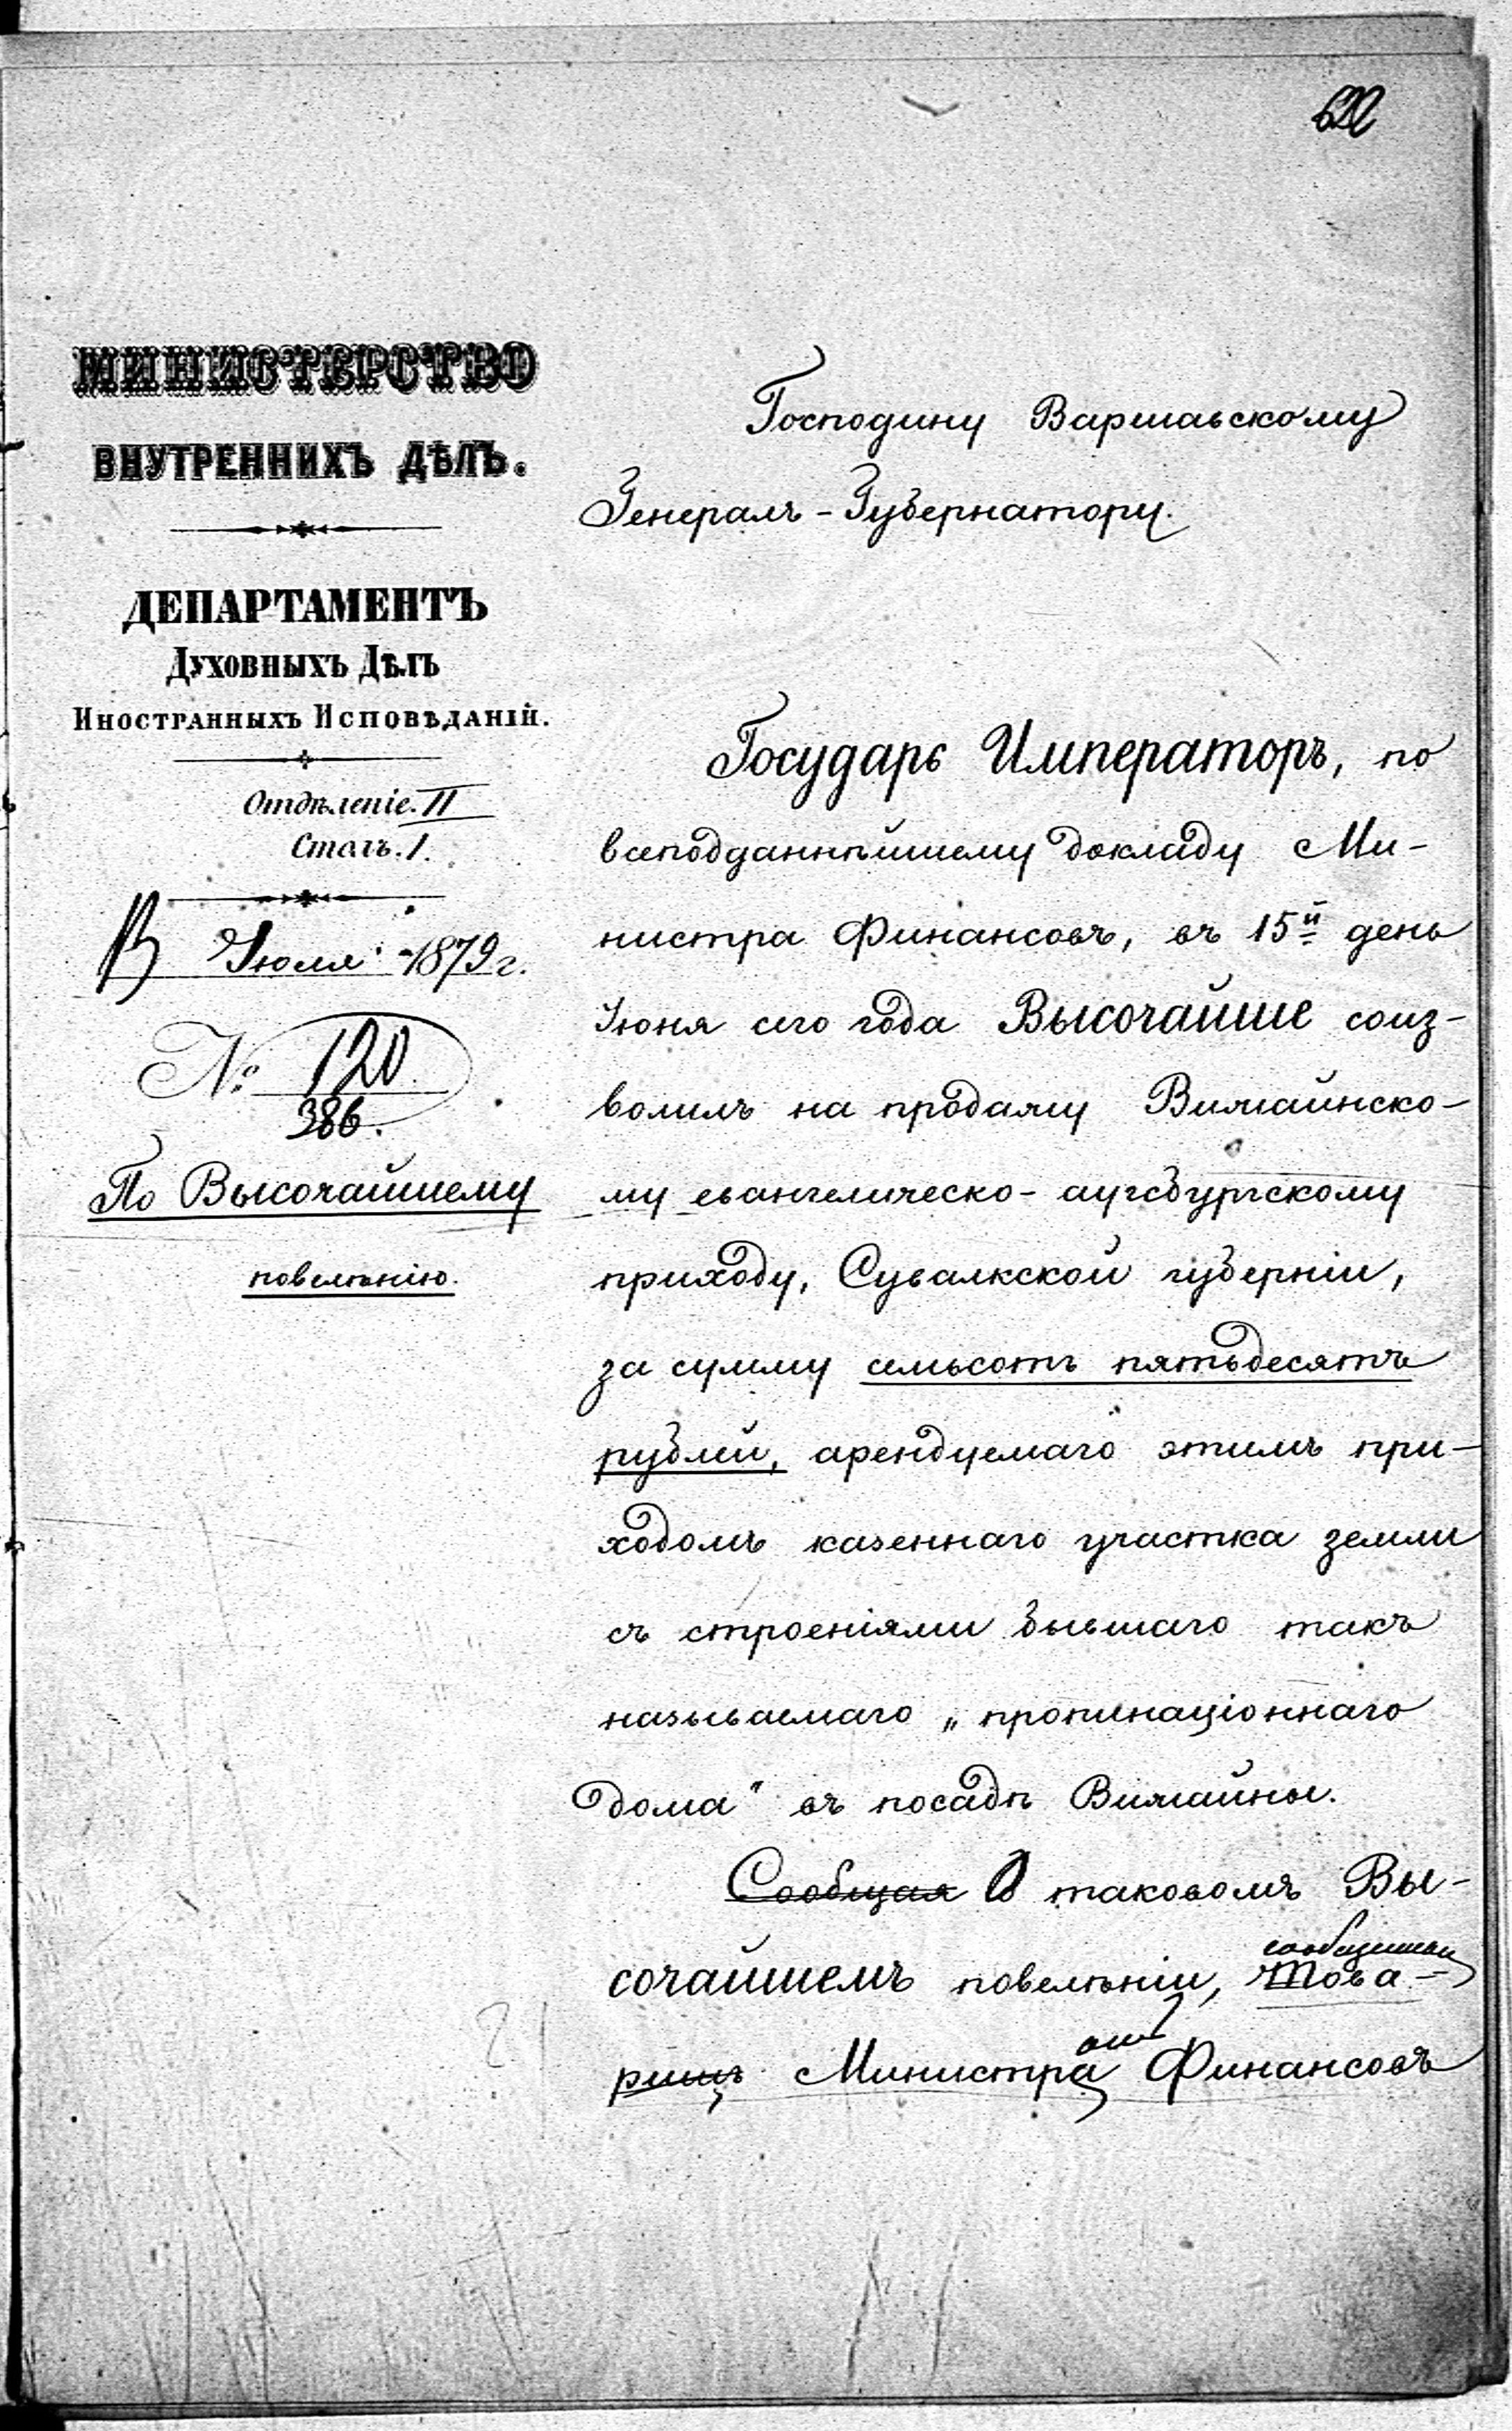 622
МИНИСТЕРСТВО
ВНУТРЕННИХЪ ДѢЛЪ.
ДЕПАРТАМЕНТЪ
ДУХОВНЫХЪ ДѢЛЪ
ИНОСТРАННЫХЪ ИСПОВѢДАНІЙ.
Отдѣленіе. II
Столъ. 1.
Іюля 1879 г.
№ 120
386.
По Высочайшему
повелѣнію.
Господину Варшавскому
Генералъ-Губернатору.
Государь Императоръ, по
всеподданнѣйшему докладу Ми-
нистра Финансовъ, въ 15й день
Іюня сего года Высочайше соиз-
волилъ на продажу Вижайнско-
му евангелическо-аугсбургскому
приходу, Сувалкской губерніи,
за сумму семьсотъ пятьдесятъ
рублей, арендуемаго этимъ при-
ходомъ казеннаго участка земли
съ строеніями бывшаго такъ
называемаго „пропинаціоннаго
дома“ въ посадѣ Вижайны.
Сообщая О таковомъ Вы-
сочайшемъ повелѣніи, Това-
рищъ Министра Финансовъ